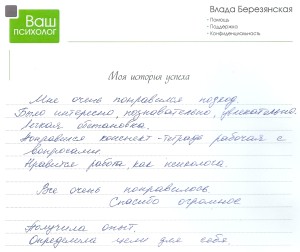 Ваш
психолог
Влада Березянская
• Помощь
• Поддержка
• Конфиденциальность
Моя история успеха
Мне очень понравился подход.
Было интересно, познавательно, увлекательно.
Легкая обстановка.
Понравился конспект-тетрадь рабочая с
вопросами.
Нравится работа, как психолога.
Все очень понравилось
Спасибо огромное
Получила опыт.
Определила цели для себя